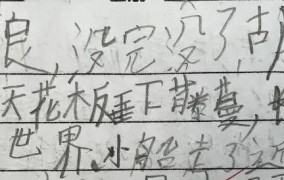 良,没完没了,古
天花板垂下藤蔓,
世界、小船走了这